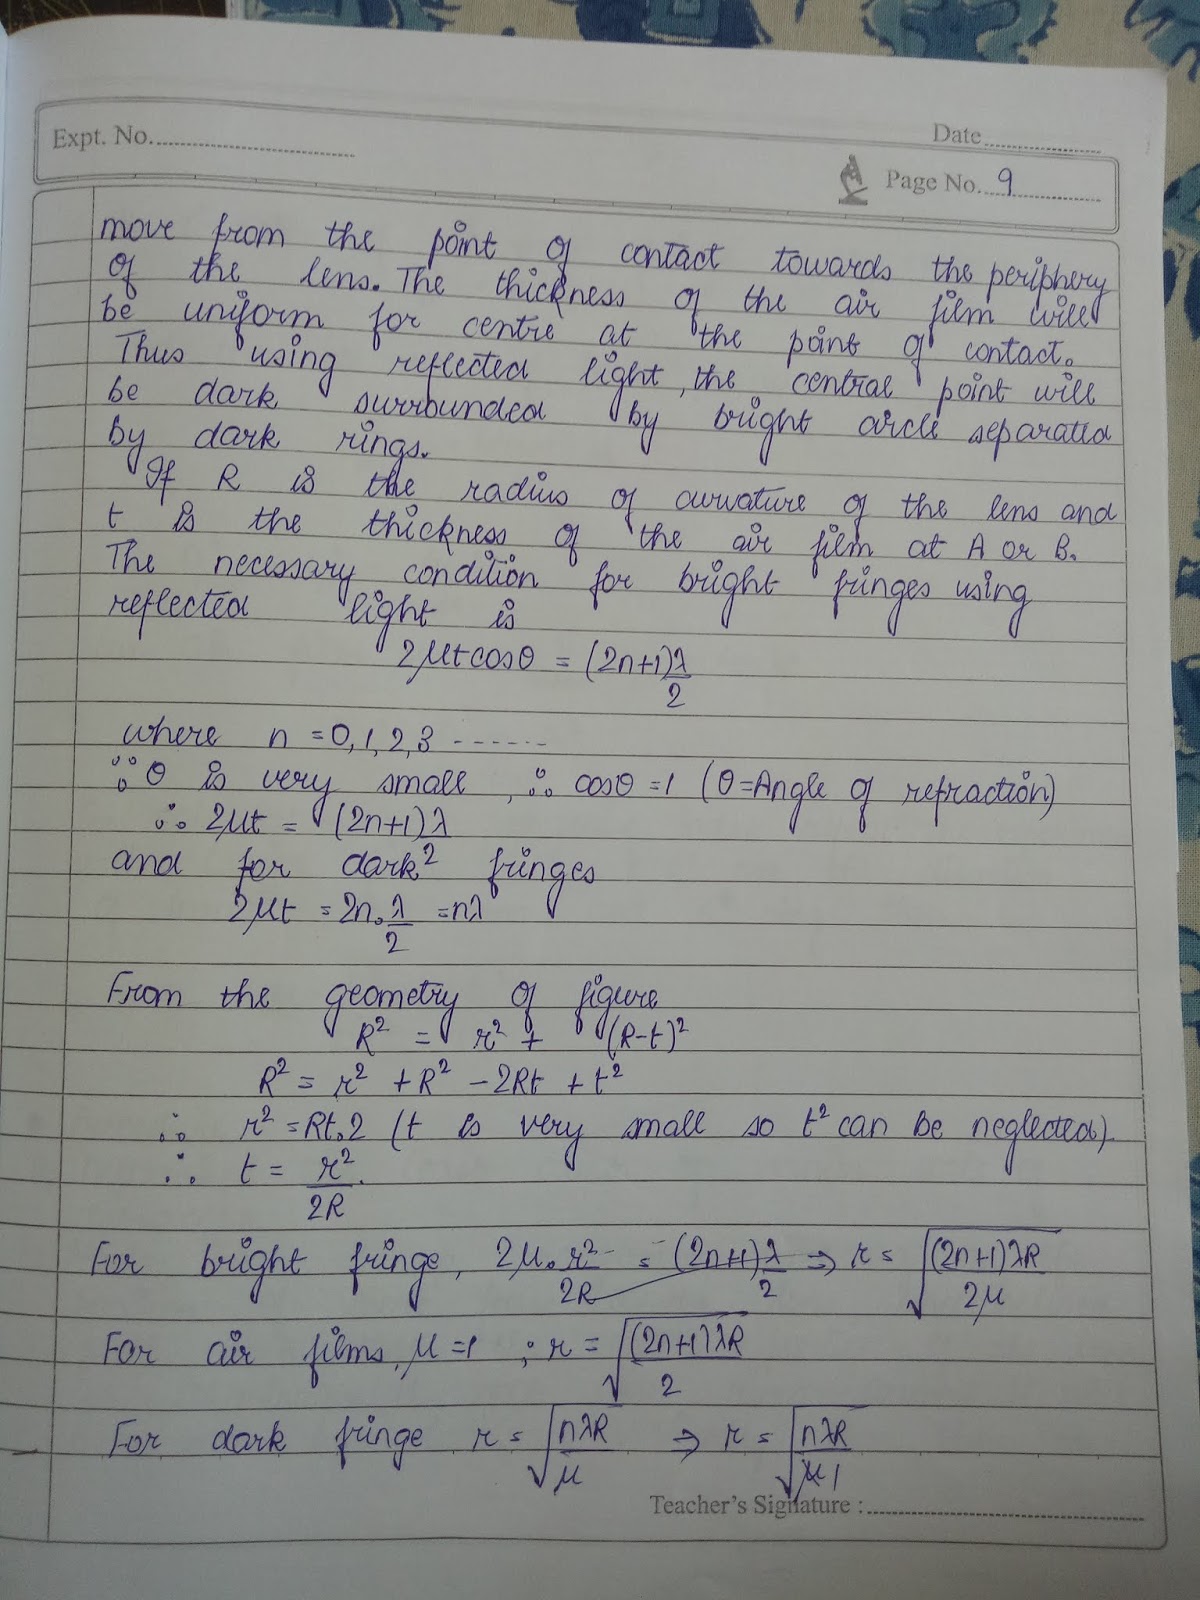 Expt. No.
Date
Page No. 9
move from the point of contact towards the periphery
of the lens. The thickness of the air film will
be uniform for centre at the point of contact.
Thus using reflected light, the central point will
be dark surrounded by bright circle separated
by dark rings.
If R is the radius of curvature of the lens and
t is the thickness of the air film at A or B.
The necessary condition for bright fringes using
reflected light is
2μtcosθ = (2n+1)λ/2
where n = 0, 1, 2, 3 ------
∵ θ is very small, ∴ cosθ = 1 (θ=Angle of refraction)
∴ 2μt = (2n+1)λ/2
and for dark fringes
2μt = 2n.λ/2 = nλ
From the geometry of figure
R² = r² + (R-t)²
R² = r² + R² - 2Rt + t²
∴ r² = Rt.2 (t is very small so t² can be neglected).
∴ t = r²/2R.
For bright fringe, 2μ.r²/2R = (2n+1)λ/2 ⇒ r = √(2n+1)λR/2μ
For air films, μ = 1 ; r = √(2n+1)λR/2
For dark fringe r = √nλR/μ ⇒ r = √nλR/μ 1
Teacher's Signature :